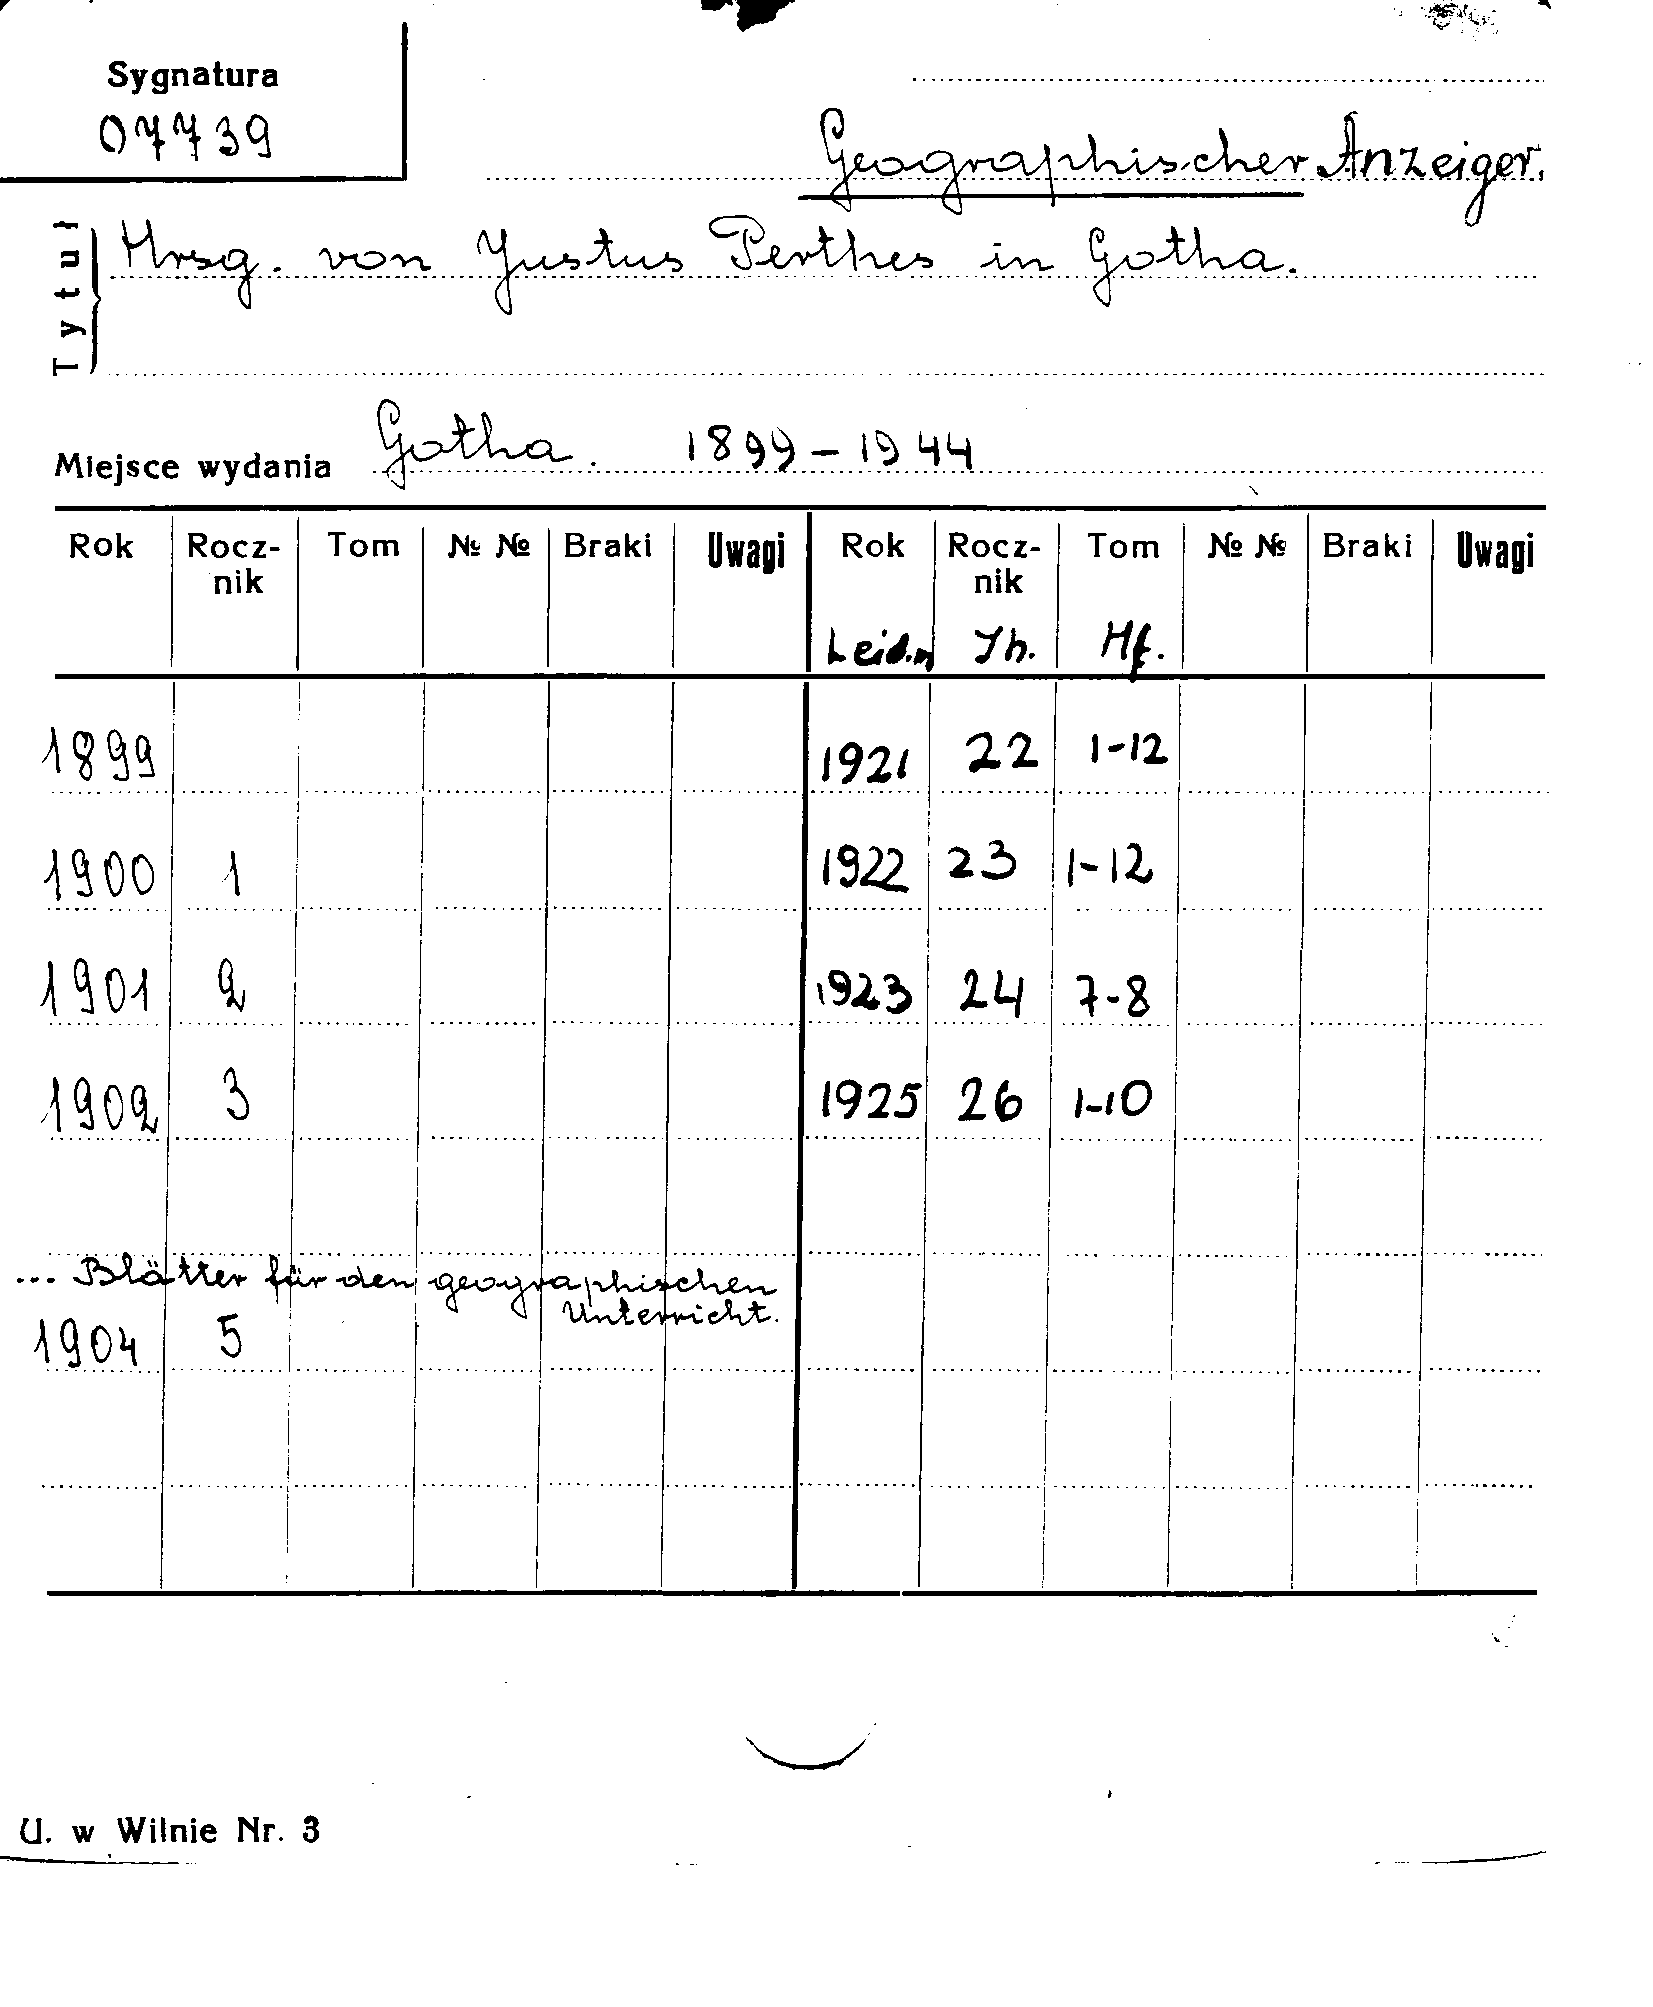 Sygnatura
07739
Geographischer Anzeiger.
Tytuł
Hrsg. von Justus Perthes in Gotha.
Miejsce wydania Gotha. 1899-1944
Rok Rocz-nik Tom № № Braki Uwagi Rok Rocz-nik Tom № № Braki Uwagi
Jh. Hf.
1899 1921 22 1-12
1900 1 1922 23 1-12
1901 2 1923 24 7-8
1902 3 1925 26 1-10
... Blätter für den geographischen
Unterricht.
1904 5
U. w Wilnie Nr. 3